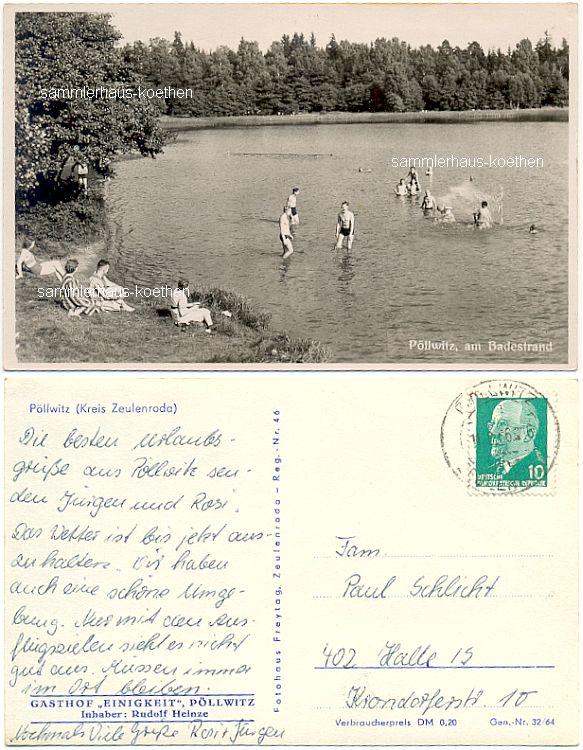 sammlerhaus-koethen
sammlerhaus-koethen
sammlerhaus-koethen
Pöllwitz, am Badestrand
Pöllwitz (Kreis Zeulenroda)
Die besten Urlaubs-
grüße aus Pöllwitz sen-
den Jürgen und Rosi.
Das Wetter ist bis jetzt aus-
zuhalten. Wir haben
auch eine schöne Umge-
bung. Nur mit den Aus-
flugszielen sieht es nicht
gut aus. Müssen immer
im Ort bleiben.
GASTHOF „EINIGKEIT“, PÖLLWITZ
Inhaber: Rudolf Heinze
Nochmals Viele Grüße Rosi + Jürgen
Fotohaus Freytag, Zeulenroda - Reg.-Nr. 46
10
DEUTSCHE
DEMOKRATISCHE REPUBLIK
Fam.
Paul Schlicht
402 Halle 15
Krondorferstr. 10
Verbraucherpreis DM 0,20 Gen.-Nr. 32/64